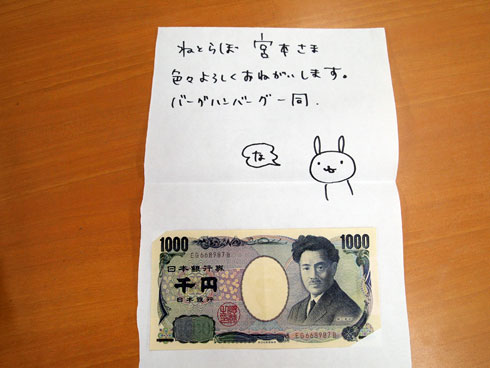 ねとらぼ 宮本さま
色々よろしくおねがいします。
バーグハンバーグ一同.
な
1000 1000
EQ668987B
日本銀行券
千円
日本銀行
EQ668987B